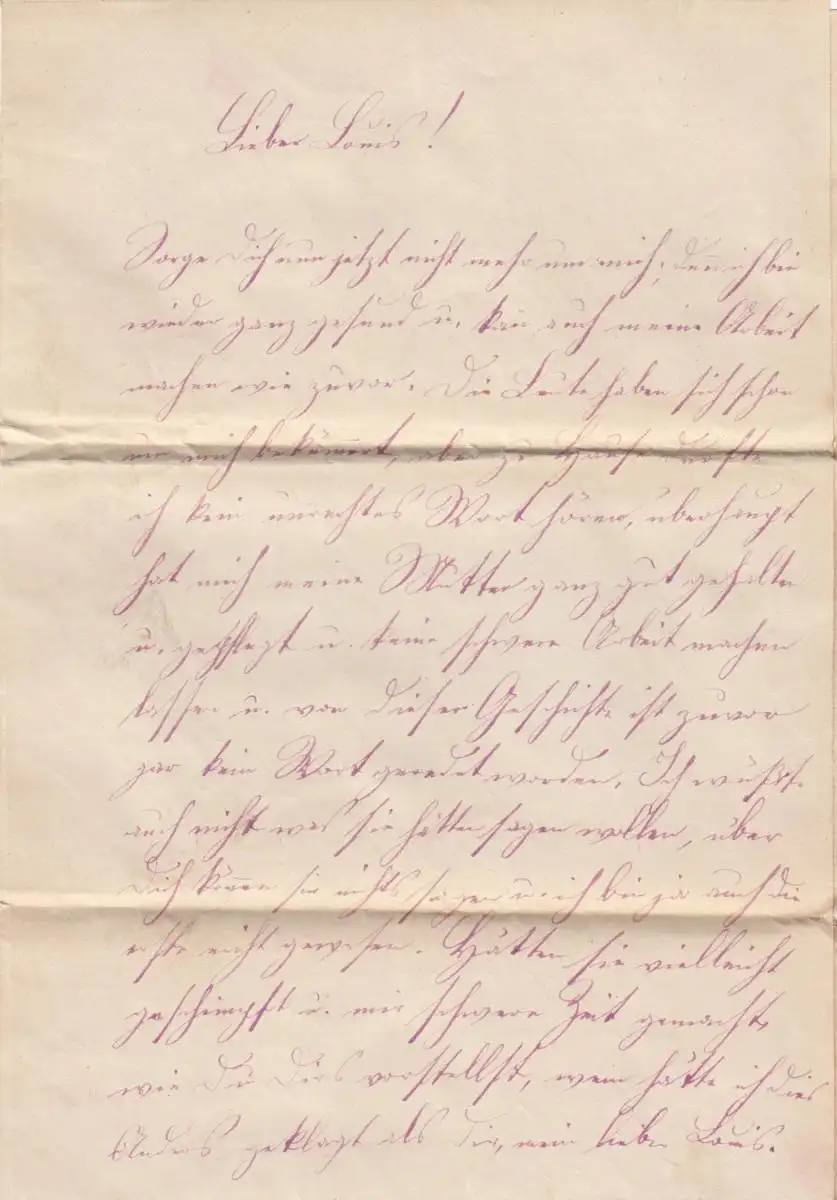 Lieber Louis!
Sorge Dich nun jetzt nicht mehr um mich, denn ich bin
wieder ganz gesund u. kan̄ auch meine Arbeit
machen wie zuvor. Die Leute haben sich schon
um mich beküm̄ert, aber zu Hause durfte
ich kein unrechtes Wort hören, überhaupt
hat mich meine Mutter ganz gut gehalten
u. gepflegt u. keine schwere Arbeit machen
lassen u. von dieser Geschichte ist zuvor
gar kein Wort geredet worden. Ich wüßte
auch nicht was sie hätten sagen wollen, über
Dich kön̄en sie nichts sagen u. ich bin ja auch die
erste nicht gewesen. Hätten sie vielleicht
geschimpft u. mir schwere Zeit gemacht,
wie Du Dirs vorstellst, wem hätte ich dies
Anders geklagt als Dir, mein lieber Louis.